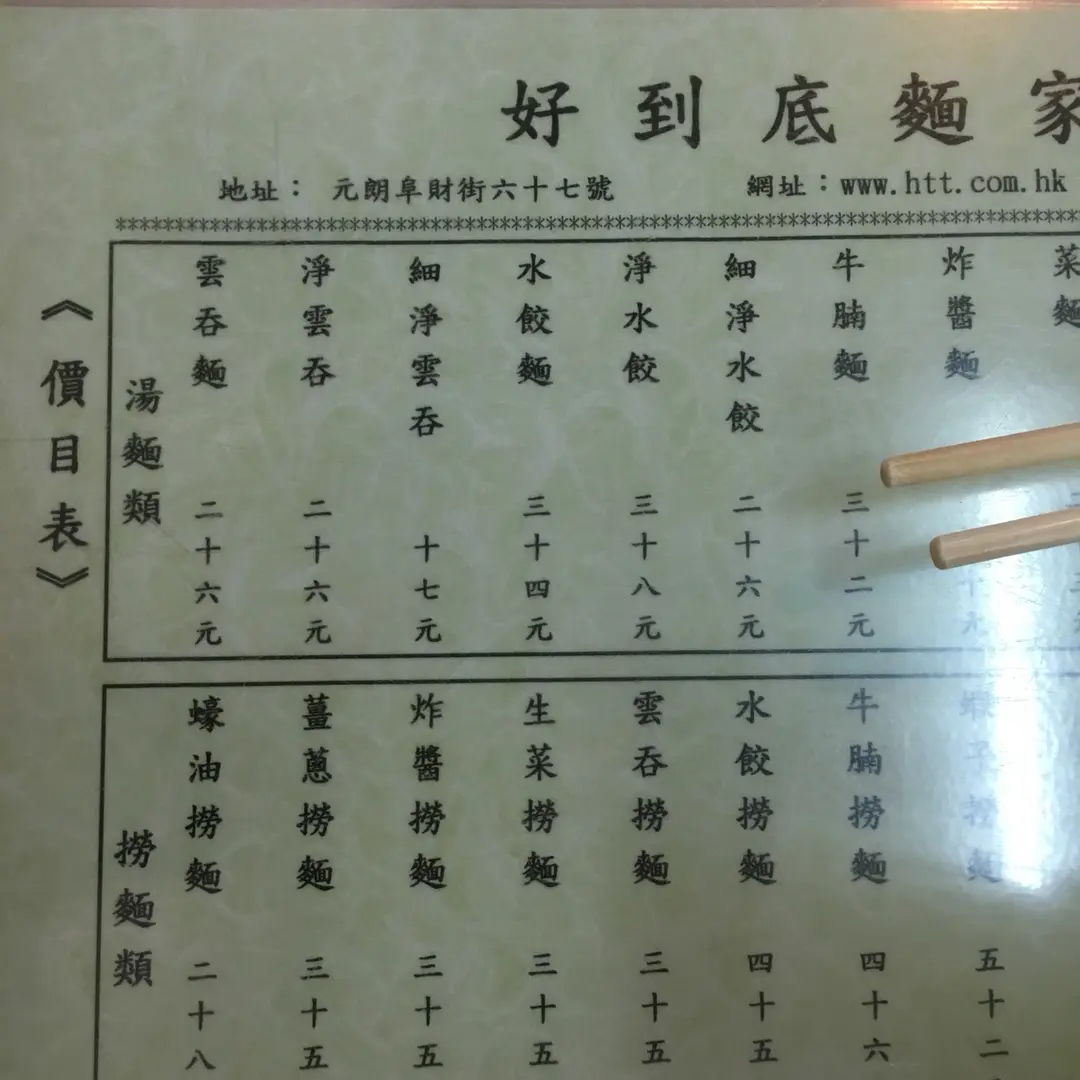 好到底麵家
地址： 元朗阜財街六十七號
網址：www.htt.com.hk
******************************************************************************
《價目表》
湯麵類
雲吞麵 二十六元
淨雲吞 二十六元
細淨雲吞 十七元
水餃麵 三十四元
淨水餃 三十八元
細淨水餃 二十六元
牛腩麵 三十二元
炸醬麵
菜麵
撈麵類
蠔油撈麵 二十八
薑蔥撈麵 三十五
炸醬撈麵 三十五
生菜撈麵 三十五
雲吞撈麵 三十五
水餃撈麵 四十五
牛腩撈麵 四十六
蝦子撈麵 五十二